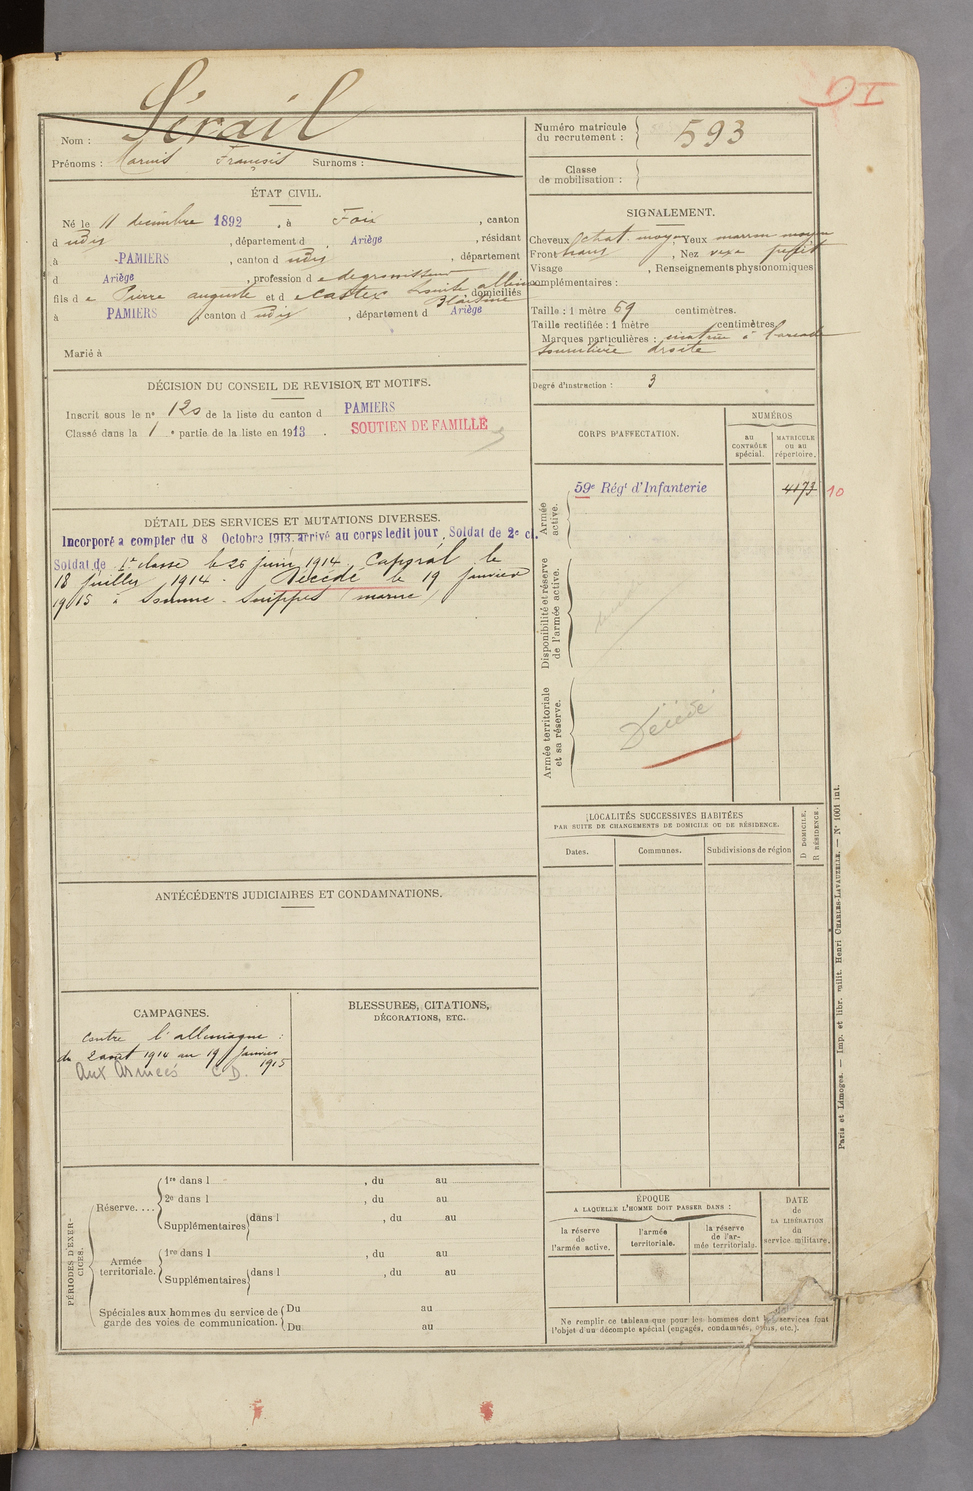 DI
Nom : Sérail
Prénoms : Marius François Surnoms :
Numéro matricule du recrutement : 593
Classe de mobilisation :
ÉTAT CIVIL.
Né le 11 décembre 1892, à Foix, canton
d udis, département d Ariège, résidant
à PAMIERS, canton d udis, département
d Ariège, profession de
fils de Pierre auguste et de Castex
domiciliés
à PAMIERS canton d udis, département d Ariège
Marié à
SIGNALEMENT.
Cheveux chat. moyen, Yeux marron moyen
Front haut, Nez vexe petit
Visage , Renseignements physionomiques
complémentaires :
Taille : 1 mètre 69 centimètres.
Taille rectifiée : 1 mètre centimètres.
Marques particulières : cicatrice à l'arcade
sourcilière droite
Degré d'instruction : 3
DÉCISION DU CONSEIL DE REVISION ET MOTIFS.
Inscrit sous le nº 120 de la liste du canton d PAMIERS
Classé dans la 1 e partie de la liste en 1913. SOUTIEN DE FAMILLE
DÉTAIL DES SERVICES ET MUTATIONS DIVERSES.
Incorporé a compter du 8 Octobre 1913. arrivé au corps ledit jour, Soldat de 2e cl.
Soldat de 1e classe le 26 juin 1914. Caporal le
18 juillet 1914. Décédé le 19 janvier
1915 à Somme-Suippes (marne)
CORPS D'AFFECTATION.
NUMÉROS
au CONTRÔLE spécial.
MATRICULE ou au répertoire.
Armée active.
59e Régt d'Infanterie
4173
10
Disponibilité et réserve de l'armée active.
Armée territoriale et sa réserve.
Décédé
LOCALITÉS SUCCESSIVES HABITÉES
PAR SUITE DE CHANGEMENTS DE DOMICILE OU DE RÉSIDENCE.
D DOMICILE.
R RÉSIDENCE.
Dates.
Communes.
Subdivisions de région
ANTÉCÉDENTS JUDICIAIRES ET CONDAMNATIONS.
CAMPAGNES.
contre l'allemagne :
du 2 août 1914 au 19 janvier
1915
Aux Armées C. D.
BLESSURES, CITATIONS,
DÉCORATIONS, ETC.
PÉRIODES D'EXERCICES.
Réserve....
1re dans l , du au
2e dans l , du au
Supplémentaires dans l , du au
Armée territoriale.
1re dans l , du au
Supplémentaires dans l , du au
Spéciales aux hommes du service de garde des voies de communication.
Du au
Du au
ÉPOQUE
A LAQUELLE L'HOMME DOIT PASSER DANS :
la réserve de l'armée active.
l'armée territoriale.
la réserve de l'armée territoriale.
DATE de LA LIBÉRATION du service militaire.
Ne remplir ce tableau que pour les hommes dont les services font
l'objet d'un décompte spécial (engagés, condamnés, omis, etc.).
Paris et Limoges. — Imp. et libr. milit. Henri CHARLES-LAVAUZELLE. — Nº 1001 int.